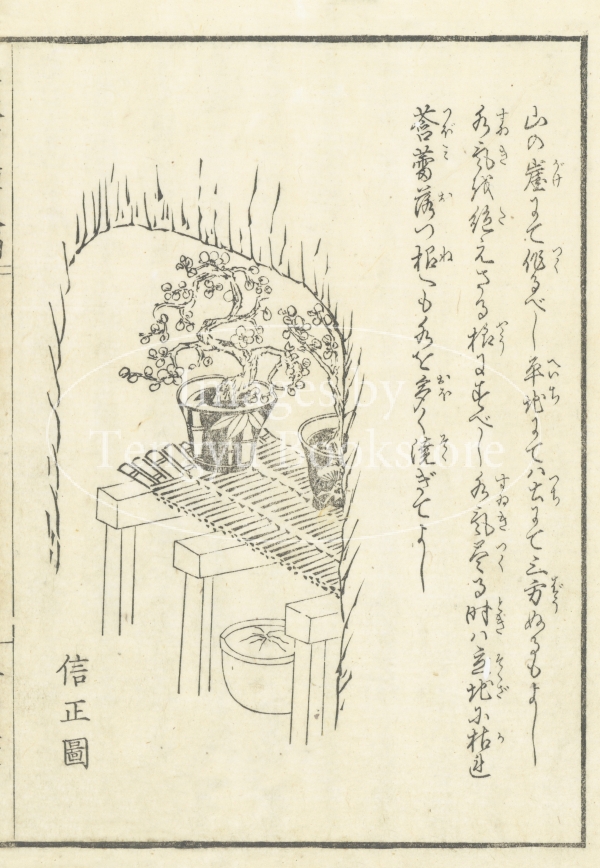 山の崖にて作るべし平地にてハ土にて三方ぬるもよし
水気絶えざる様にすべし水気尽る時ハ立地に枯

落つ根へも水を多く濺ぎてよし
信正圖
Images by
Tenjyu Bookstore